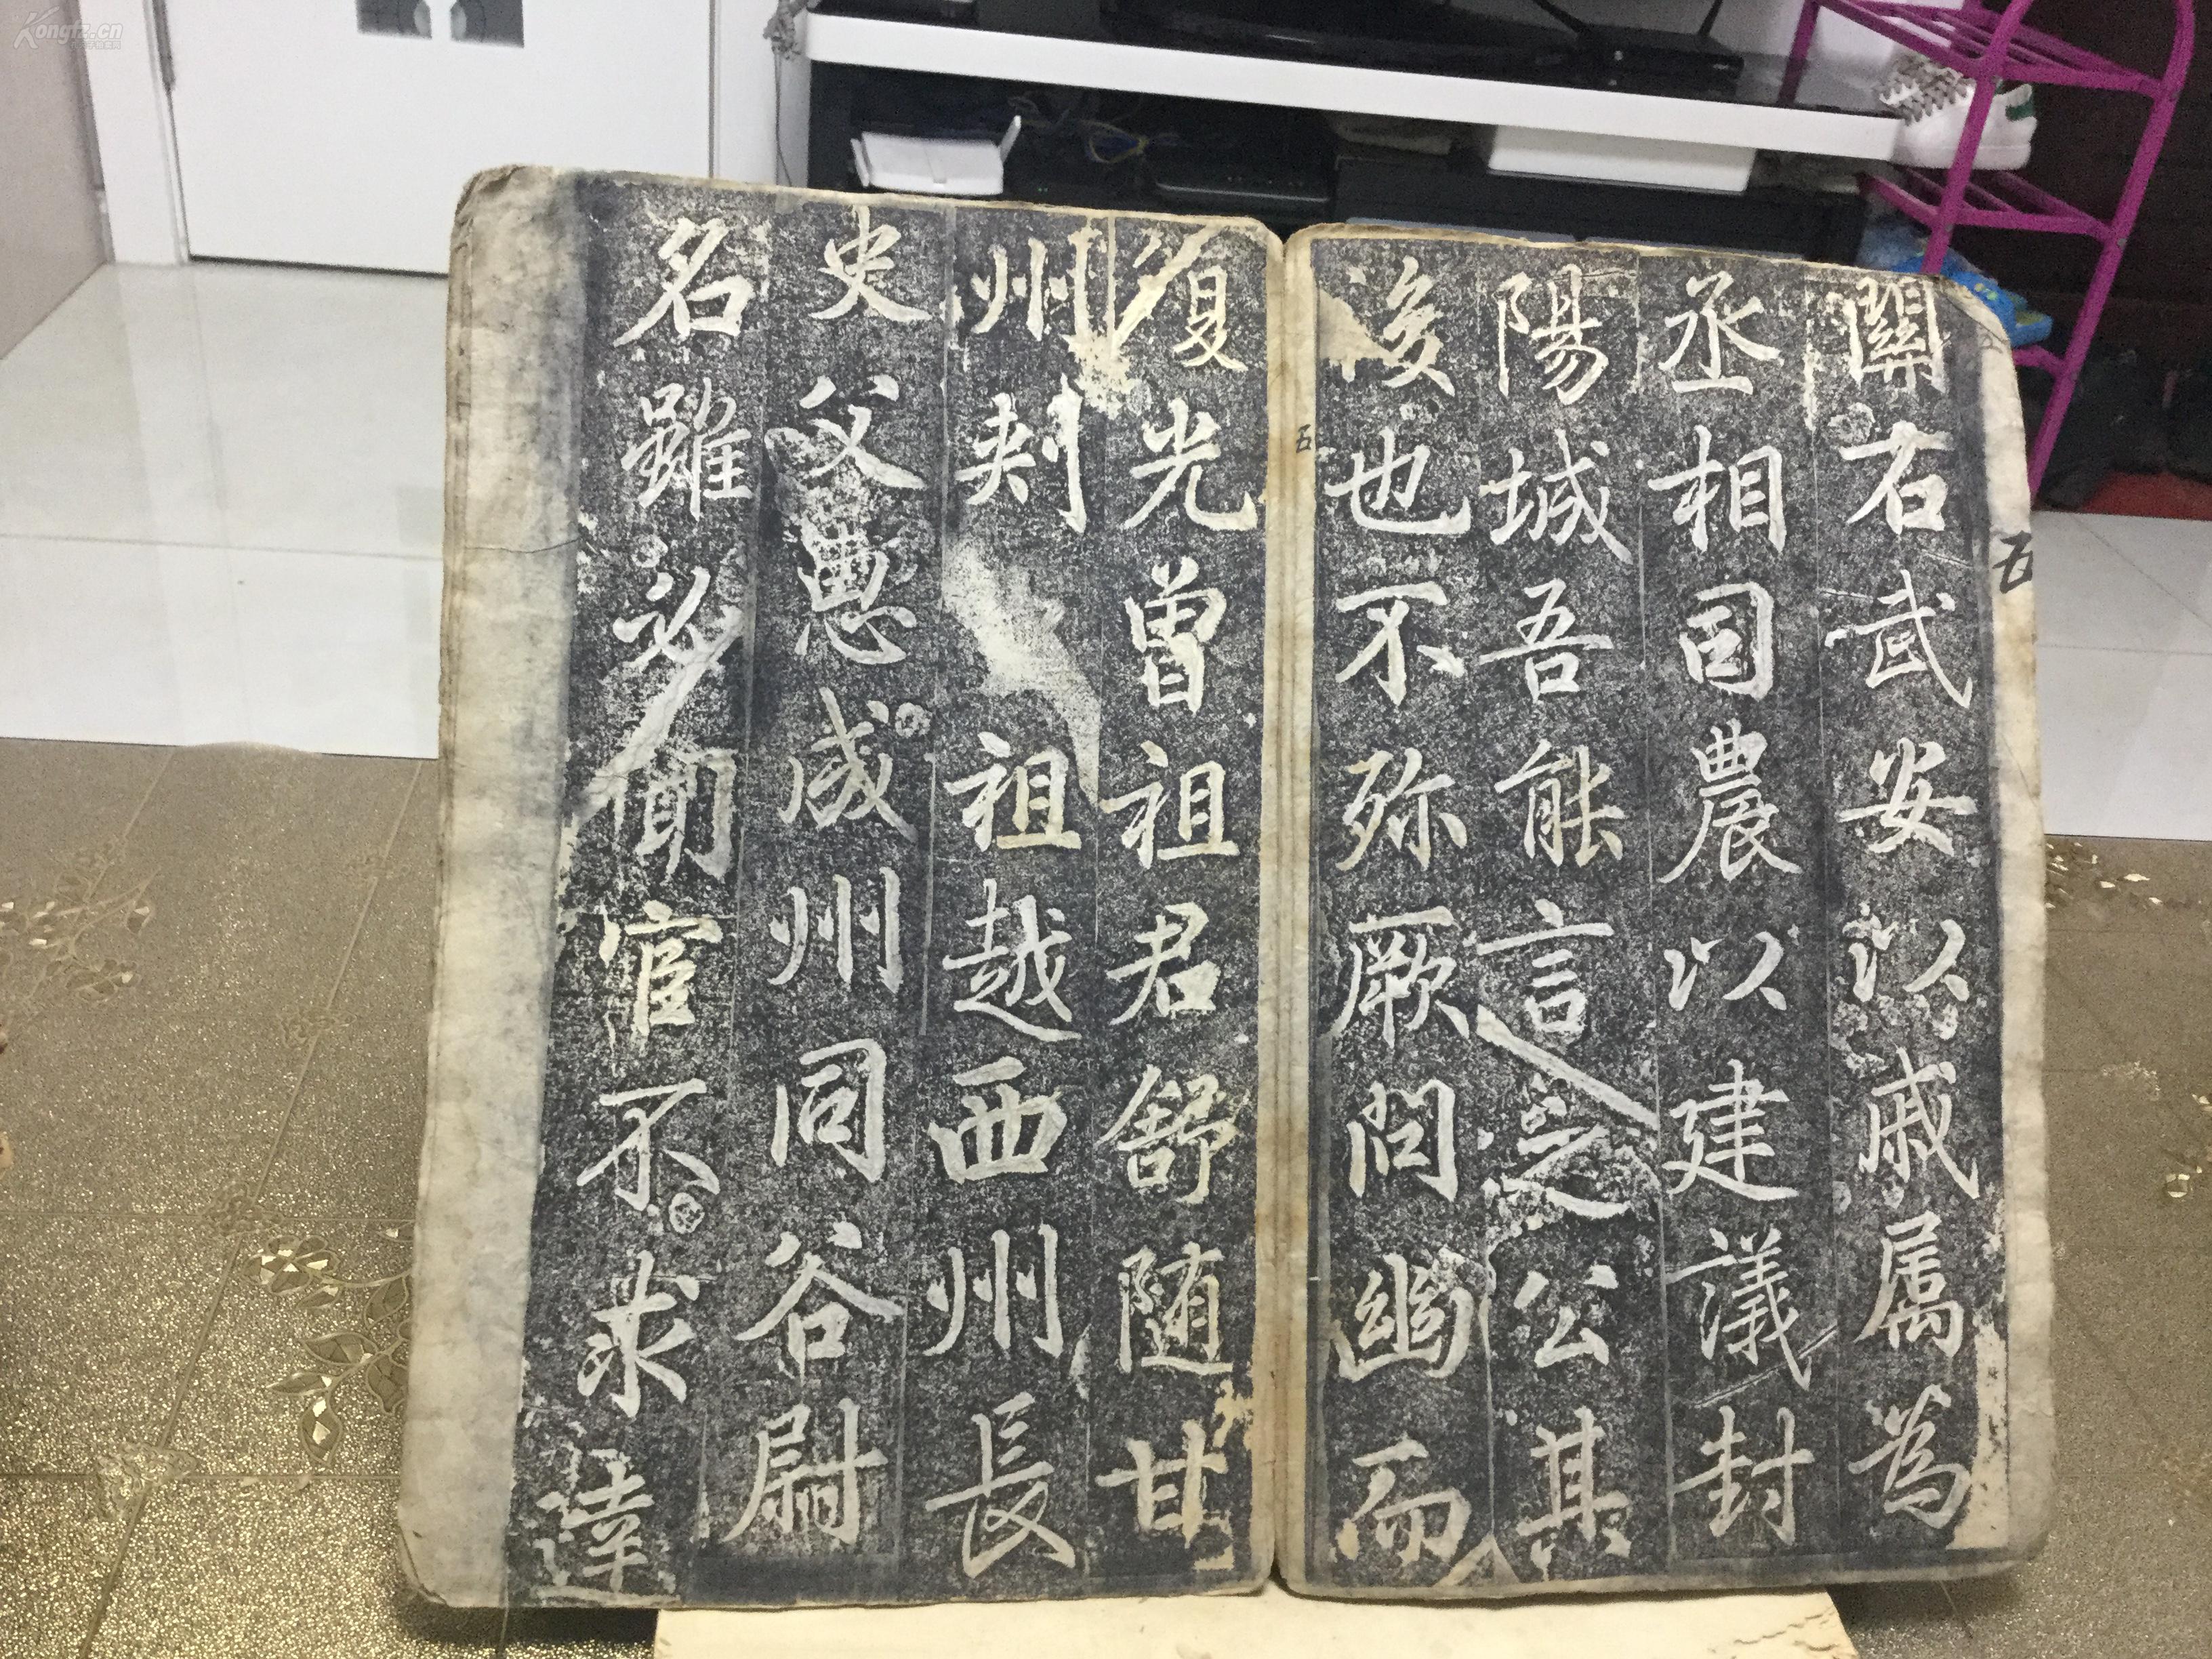 關右武安以戚属為
丞相固農以建議封
陽城吾能言之公其
後也不殄厥問幽而
復光曾祖君舒随甘
州刺祖越西州長
史父悳成州同谷尉
名雖必聞官不求達
五
五
Kongfz.cn